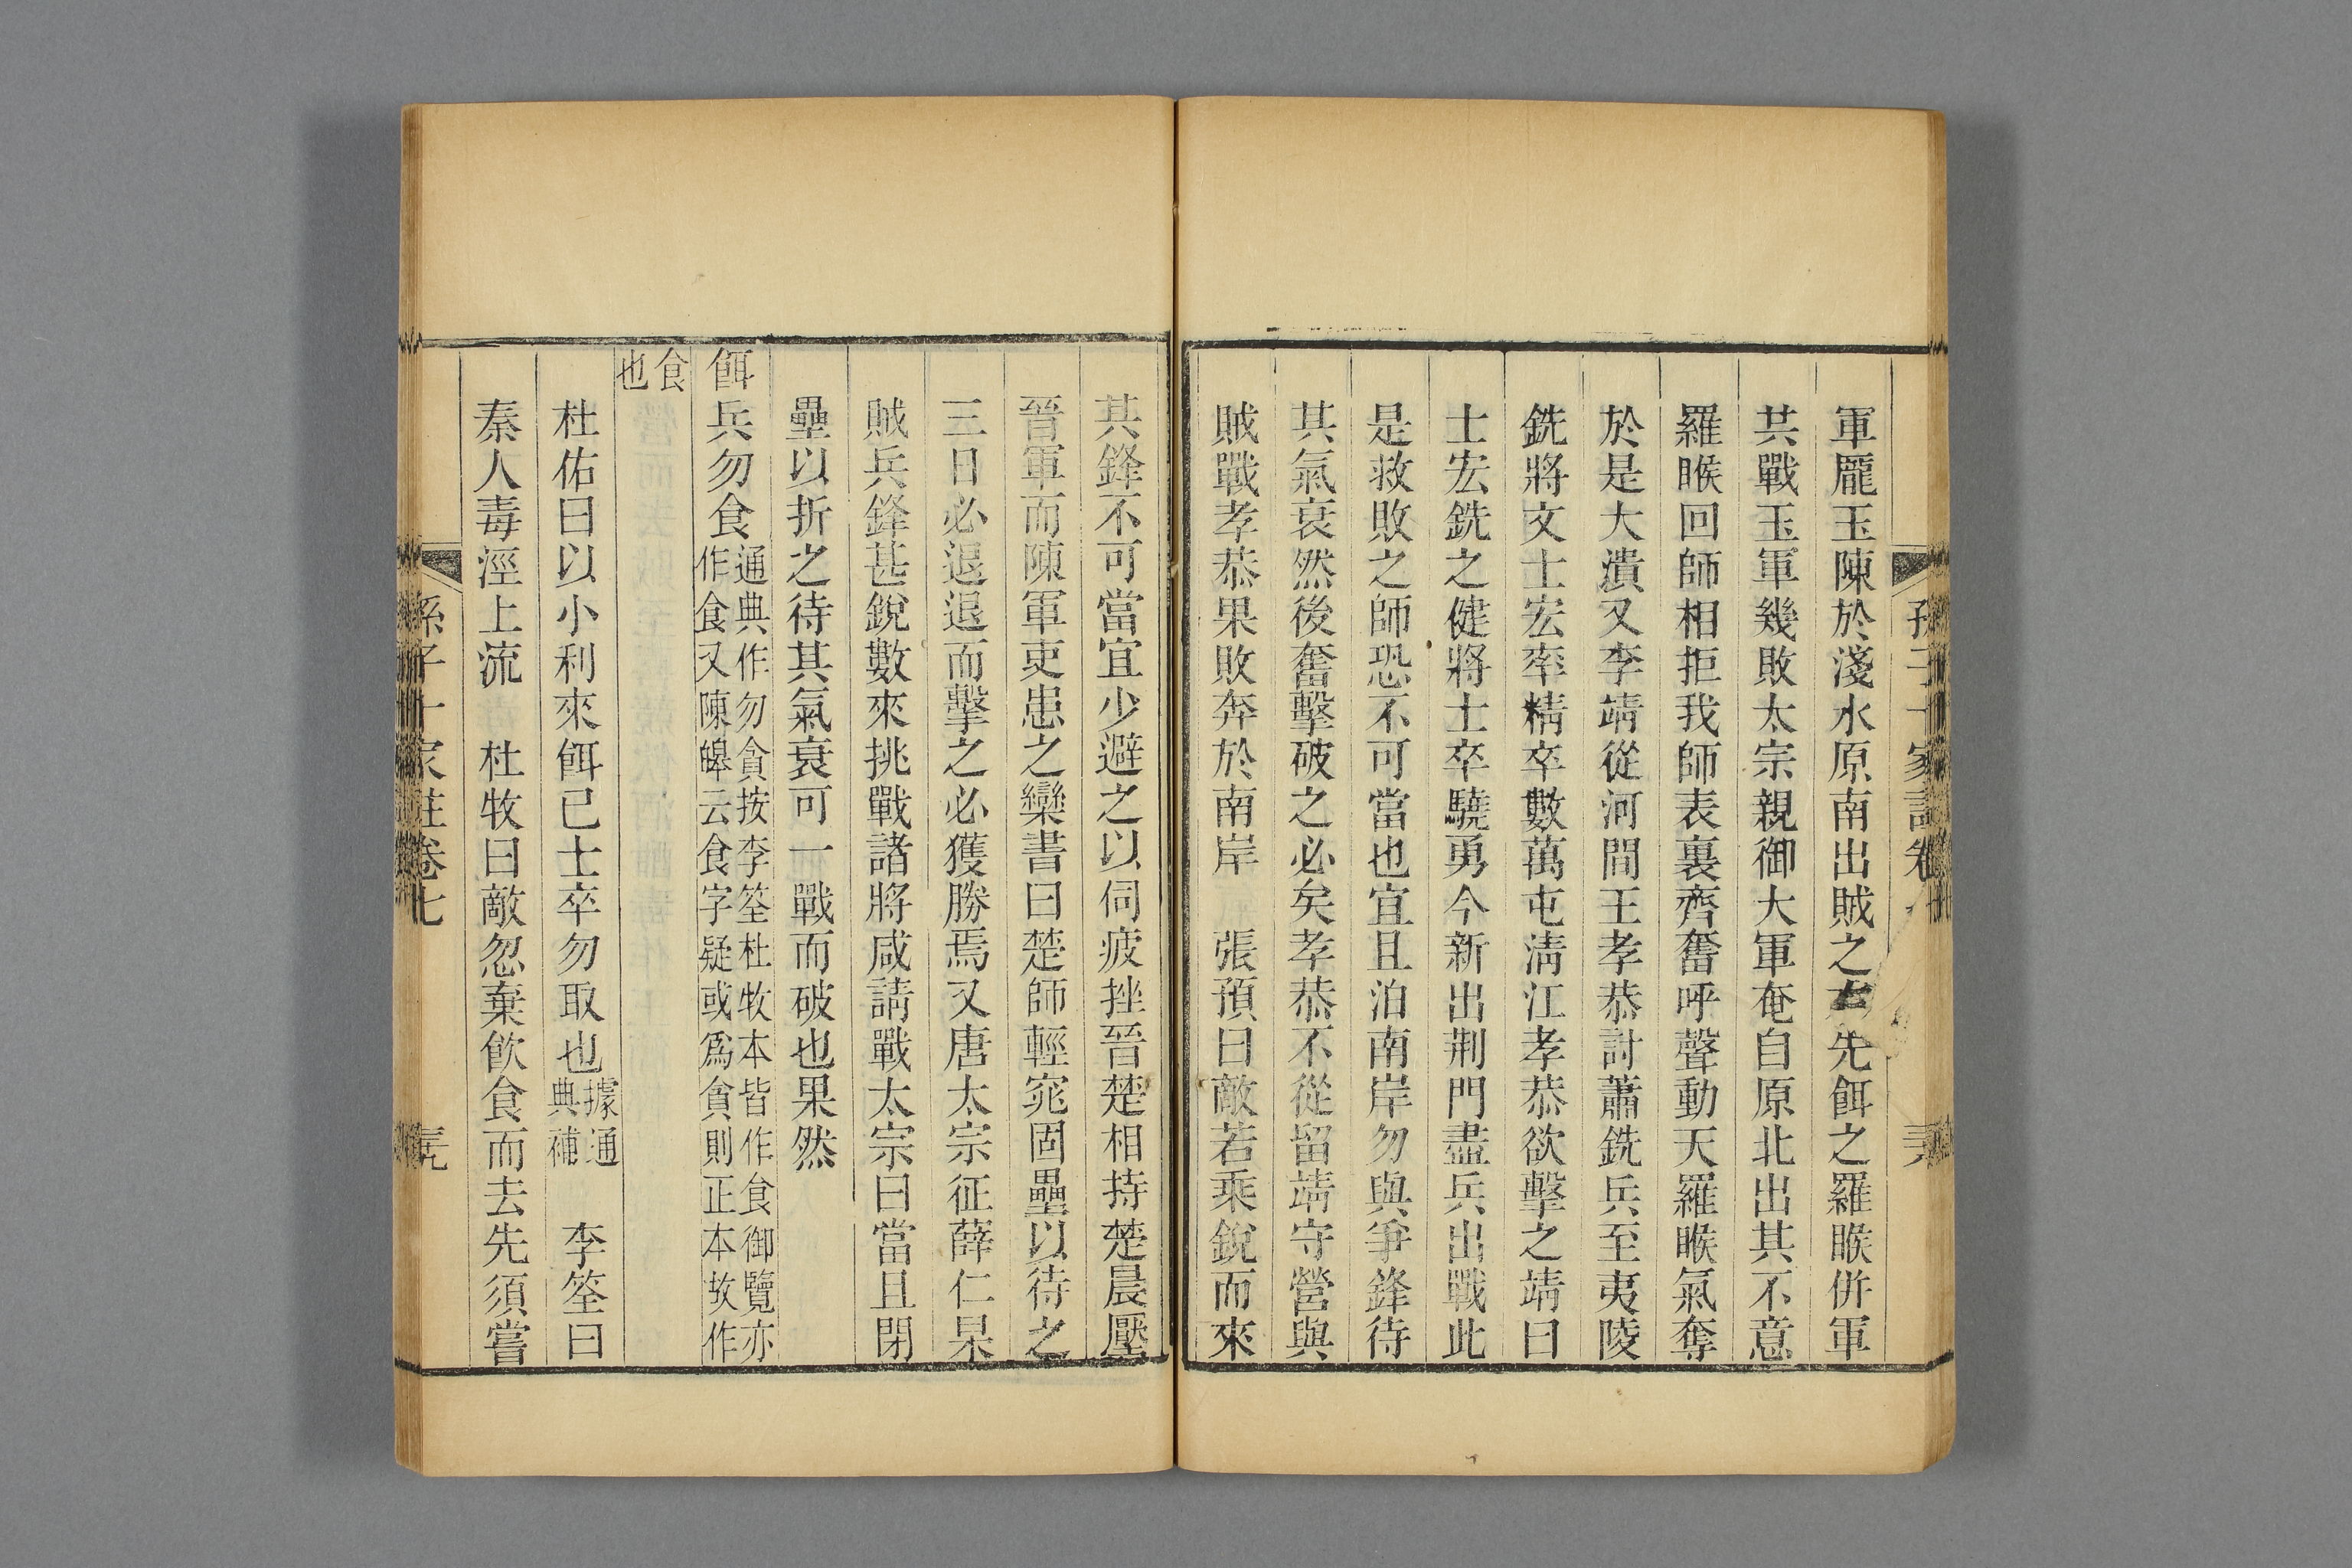 軍龎玉陳於淺水原南出賊之右先餌之羅睺併軍
共戰玉軍幾敗太宗親御大軍奄自原北出其不意
羅睺回師相拒我師表裏齊奮呼聲動天羅睺氣奪
於是大潰又李靖從河間王孝恭討蕭銑兵至夷陵
銑將文士宏率精卒數萬屯淸江孝恭欲擊之靖曰
士宏銑之健將士卒驍勇今新出荆門盡兵出戰此
是救敗之師恐不可當也宜且泊南岸勿與爭鋒待
其氣衰然後奮擊破之必矣孝恭不從留靖守營與
賊戰孝恭果敗奔於南岸　張預曰敵若乘銳而來
其鋒不可當宜少避之以伺疲挫晉楚相持楚晨壓
晉軍而陳軍吏患之欒書曰楚師輕窕固壘以待之
三日必退退而擊之必獲勝焉又唐太宗征薛仁杲
賊兵鋒甚銳數來挑戰諸將咸請戰太宗曰當且閉
壘以折之待其氣衰可一戰而破也果然
餌兵勿食通典作勿貪按李筌杜牧本皆作食御覽亦
作食又陳皥云食字疑或爲貪則正本故作
食
也
杜佑曰以小利來餌已士卒勿取也據通
典補　李筌曰
秦人毒涇上流　杜牧曰敵忽棄飮食而去先須嘗
孫子十家註卷七